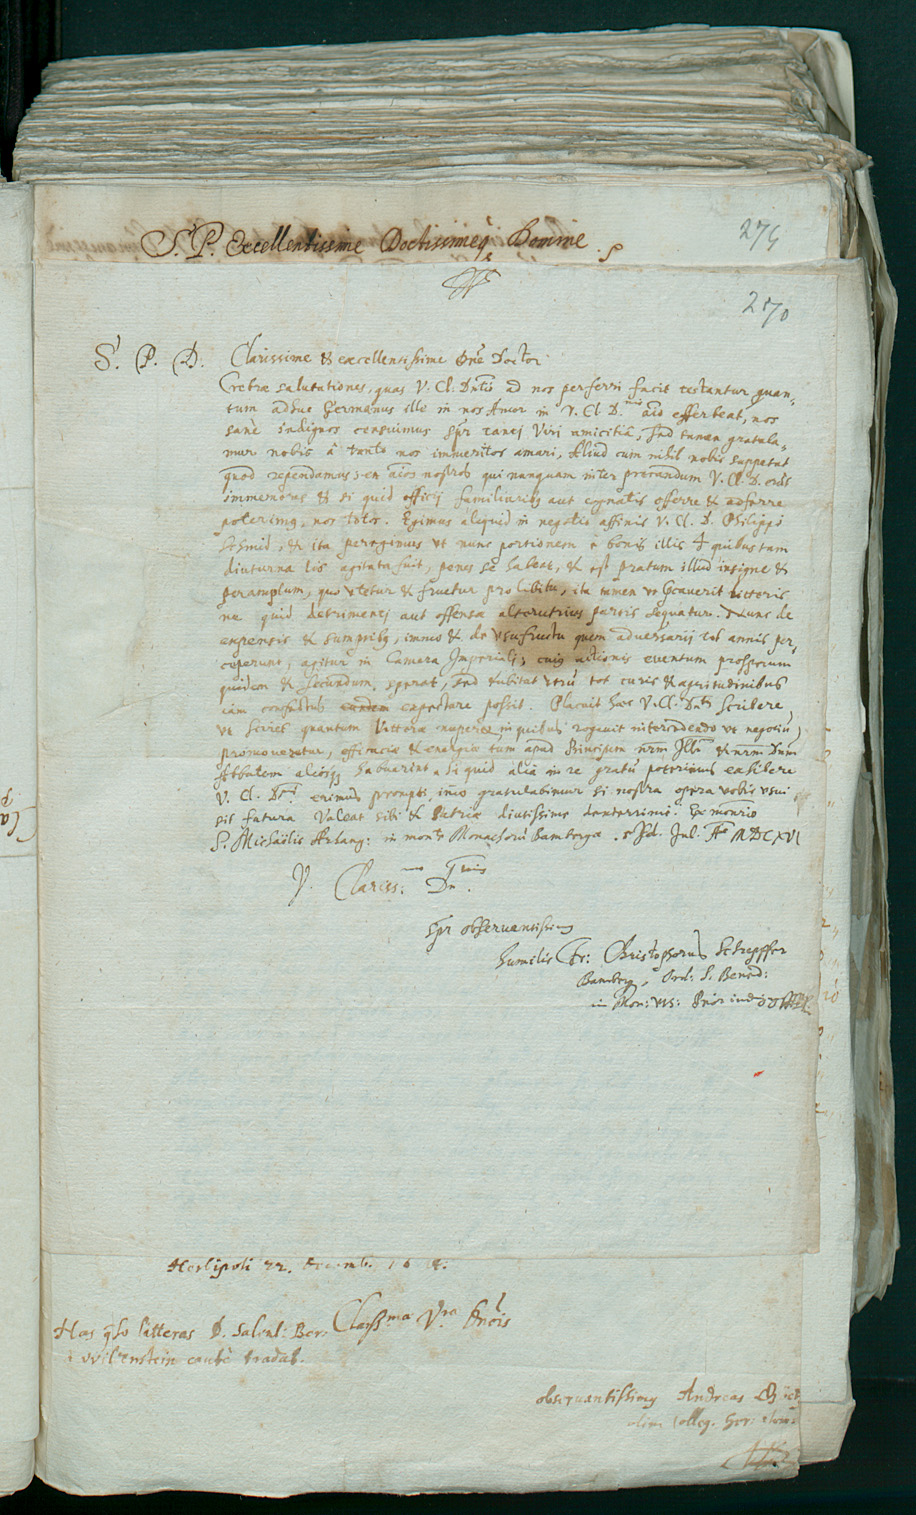 S. P. Excellentissime Doctissimeq Domine
275
270
S. P. D. Clarissime & excellentissime Dne Doctor
Crebræ salutationes, quas V. Cl. Dntis ad nos perferri facit testantur quan-
tum adhuc Germanus ille in nos Amor in V. Cl. D. aio efferbeat, nos
sanè indignos censuimus spr tanti Viri amicitia, sed tamen gratula-
mur nobis â tanto nos immeritos amari, Aliud cum nihil nobis suppetat
quod rependamus, en aios nostros qui nunquam inter precandum V. Cl. D. erūt
immemores & si quid officij familiaribq aut cognatis efferre & adferre
poterimq, nos totos. Egimus aliquid in negotio affinis V. Cl. D. Philippi
Schmid, & ita peregimus vt nunc portionem è bonis illis p quibus tam
diuturna lis agitata fuit, penes se habeat, & est pratum illud insigne &
peramplum, quo vtetur & fruetur pro libitu, ita tamen vt Cauerit litteris
ne quid detrimenti aut offensæ alterutrius partis sequatur. Nunc de
expensis & sumptibq, immo & de vsufructu quem aduersarij tot annis per-
ceperunt, agitur in Camara Imperiali, cuiq actionis euentum prosperum
quidem & secundum sperat, sed dubitat vtrū tot curis & ægritudinibus
iam confectus eundem expectare possit. Placuit hæc V. Cl. Dnti scribere,
vt sciret quantum litteræ nuperæ in quibus rogauit intercedendo vt negotiū
promoueretur, efficaciæ & energiæ tum apud Principem nrm Illm & nrm Dnm
Abbatem aliosqq habuerint. Si quid aliâ in re gratū poterimus exhibere
V. Cl. Dti erimus prompti, imò gratulabimur si nostra opera vobis vsui
sit futura. Valeat sibi & Patriæ diutissime
S. Michaëlis Archang: in monte Monachorū Bambergæ. Jul. Ao MDCXVI
V. Clariss: Dn.
spr obseruantissimq
humilis Fr: Christophorus
Bamberg, Ord: S. Bened:
Herbipoli 22.
Has qso litteras D.
cautè tradas.
Clariss.ma V.ra
obseruantissimq Andreas
olim Colleg.